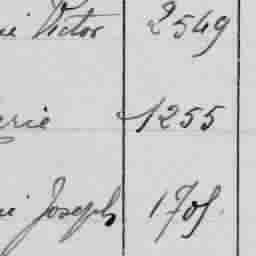 Victor 2549
1255
Joseph 1705